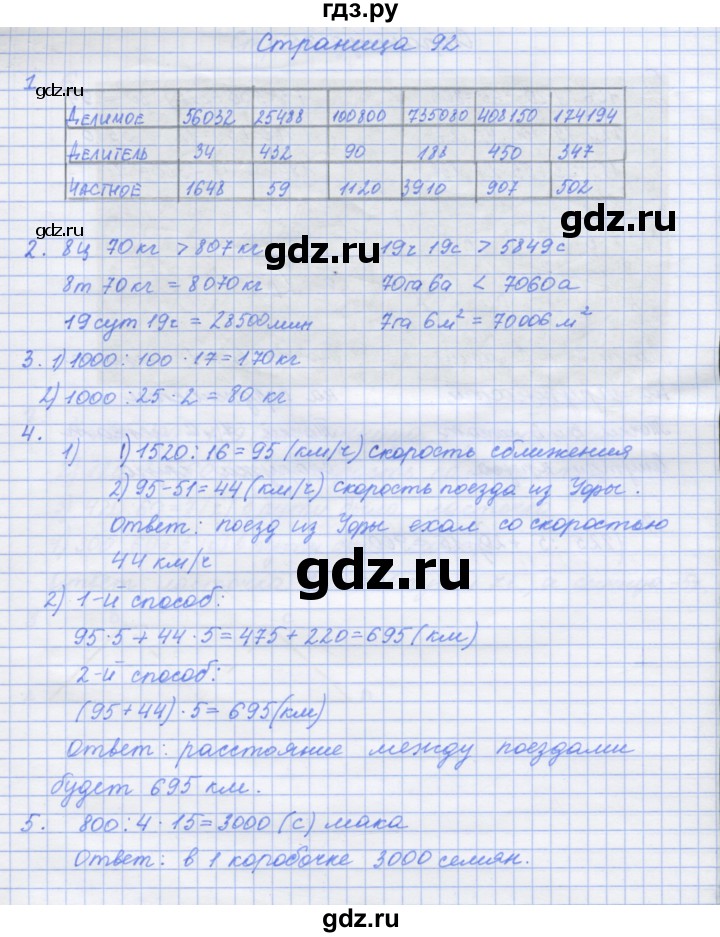 гдз.ру
Страница 92
1
gdz.ru
Делимое 56032 25488 100800 735080 408150 174194
Делитель 34 432 90 188 450 347
Частное 1648 59 1120 3910 907 502
gdz.ru
gdz.ru
2. 8ц 70кг > 807кг 19ч 19с > 5849с
gdz.ru
8т 70кг = 8070кг 70га 6а < 7060а
19сут 19ч = 28500мин 7га 6м² = 70006м²
3. 1) 1000 : 100 · 17 = 170кг
2) 1000 : 25 · 2 = 80 кг
4.
1) 1) 1520 : 16 = 95 (км/ч) скорость сближения
2) 95-51 = 44 (км/ч) скорость поезда из Уфы.
Ответ: поезд из Уфы ехал со скоростью
44 км/ч
gdz.ru
2) 1-й способ:
95·5 + 44·5 = 475 + 220 = 695 (км)
2-й способ:
(95+44)·5 = 695(км)
Ответ: расстояние между поездами
будет 695 км.
gdz.ru
5. 800 : 4 · 15 = 3000 (с) мака
Ответ: в 1 коробочке 3000 семян.
gdz.ru
gdz.ru